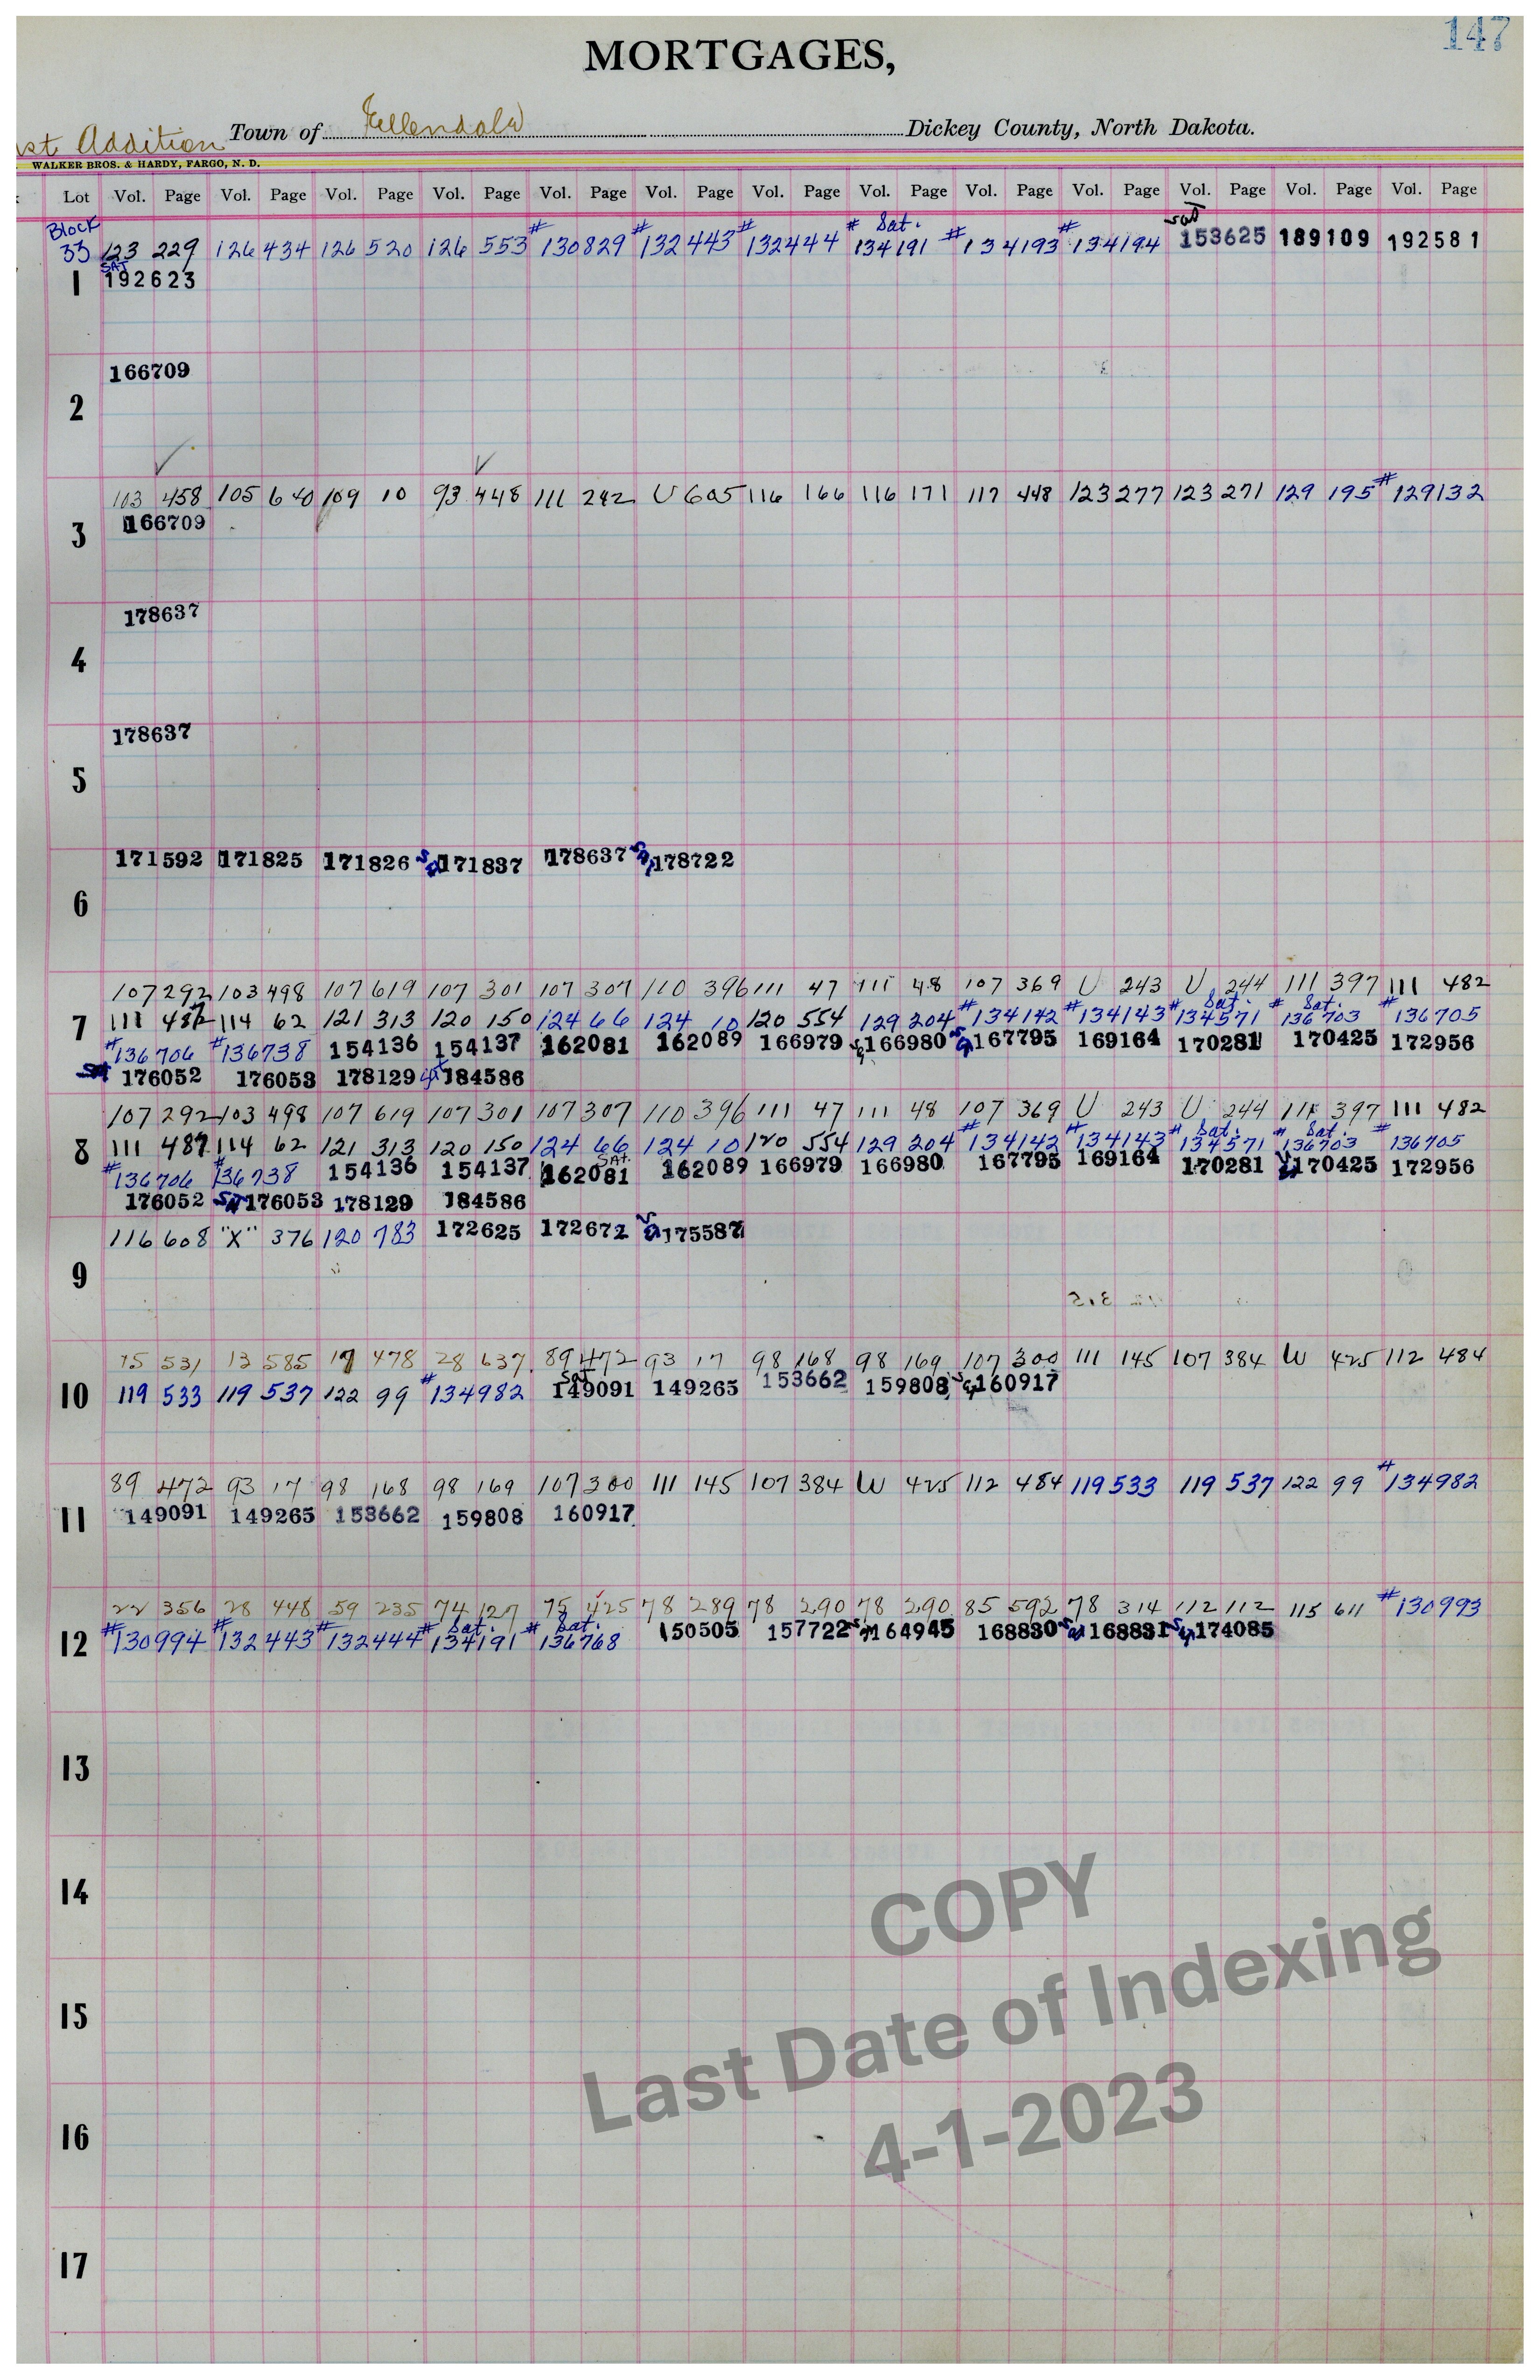 147
MORTGAGES,
st Addition Town of Ellendale Dickey County, North Dakota.
WALKER BROS. & HARDY, FARGO, N. D.
Lot Vol. Page Vol. Page Vol. Page Vol. Page Vol. Page Vol. Page Vol. Page Vol. Page Vol. Page Vol. Page Vol. Page Vol. Page Vol. Page
Block Sat. Sat
33 123 229 126 434 126 520 126 553 #130829 #132443 #132444 #134191 #134193 #134194 153625 189109 192581
SAT
1 192623
166709
2
103 458 105 640 109 10 93 448 111 242 U 605 116 166 116 171 117 448 123 277 123 271 129 195 #129132
166709
3
178637
4
178637
5
171592 171825 171826 171837 178637 178722
6
107 292 103 498 107 619 107 301 107 307 110 396 111 47 111 48 107 369 U 243 U 244 111 397 111 482
Sat. Sat.
7 111 487 114 62 121 313 120 150 124 66 124 10 120 554 129 204 #134142 #134143 #134571 #136703 #136705
#136706 #136738 154136 154137 162081 162089 166979 166980 167795 169164 170281 170425 172956
176052 176053 178129 184586
107 292 103 498 107 619 107 301 107 307 110 396 111 47 111 48 107 369 U 243 U 244 111 397 111 482
Sat. Sat.
8 111 487 114 62 121 313 120 150 124 66 124 10 120 554 129 204 #134142 #134143 #134571 #136703 #136705
SAT.
#136706 #136738 154136 154137 162081 162089 166979 166980 167795 169164 170281 170425 172956
176052 176053 178129 184586
116 608 "X" 376 120 783 172625 172672 175587
9
15 531 13 585 17 478 28 637 89 472 93 17 98 168 98 169 107 300 111 145 107 384 W 425 112 484
Sat
10 119 533 119 537 122 99 #134982 149091 149265 153662 159808 160917
89 472 93 17 98 168 98 169 107 300 111 145 107 384 W 425 112 484 119 533 119 537 122 99 #134982
11 149091 149265 153662 159808 160917
22 356 28 448 59 235 74 127 75 425 78 289 78 290 78 290 85 592 78 314 112 112 115 611 #130993
Sat. Sat.
12 #130994 #132443 #132444 #134191 #136768 150505 157722 164945 168830 168831 174085
13
14
15
16
17
COPY
Last Date of Indexing
4-1-2023